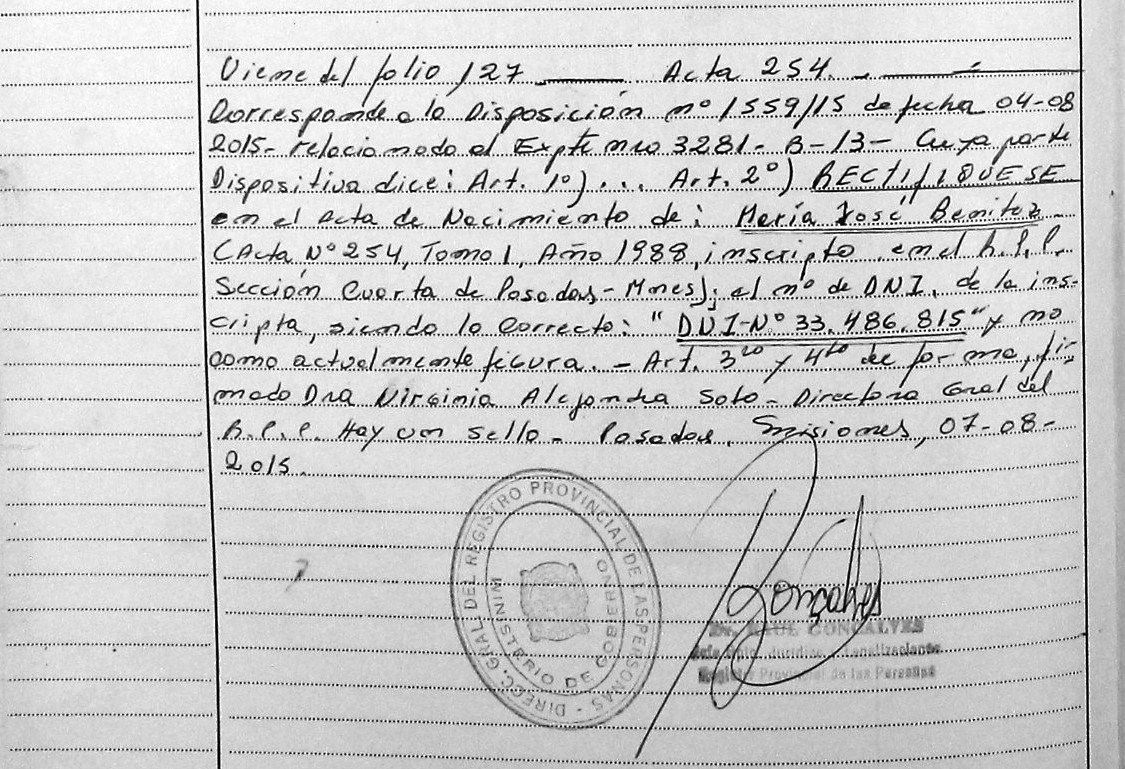 Viene del folio 127 ——— Acta 254. - ———
Corresponde a la Disposición nº 1559/15 de fecha 04-08
2015- relacionado al Expte nro 3281- B-13- Cuya parte
Dispositiva dice: Art. 1º)... Art. 2º) RECTIFIQUESE
en el acta de Nacimiento de: María José Benitez
(Acta Nº 254, Tomo 1, Año 1988, inscripto en el R.P.P.
Sección Cuarta de Posadas-Mnes); el nº de DNI, de la ins-
cripta, siendo lo correcto: "DNI-Nº 33.486.815" y no
como actualmente figura. - Art. 3ro y 4to de forma, fir-
mado Dra Virginia Alejandra Soto - Directora Gral del
R.P.P. Hay un sello - Posadas, Misiones, 07-08-
2015.
DIRECC. GRAL DEL REGISTRO PROVINCIAL DE LAS PERSONAS -
MINISTERIO DE GOBIERNO
Gonçalves
Dr. RAUL GONCALVES
Jefe Dpto. Jurídico
Registro Provincial de las Personas